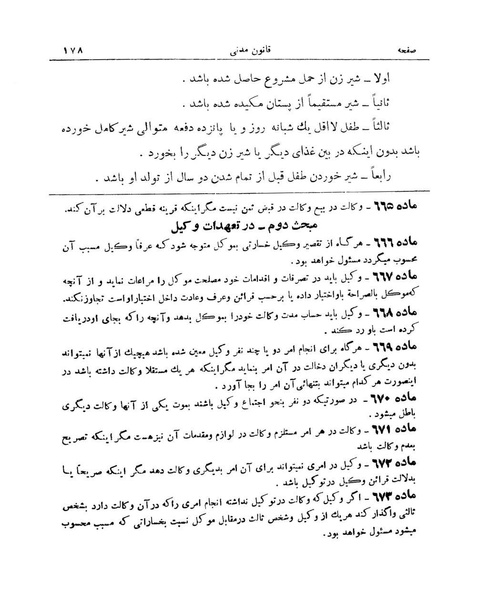 صفحه قانون مدنی ۱۷۸
اولا ــ شیر زن از حمل مشروع حاصل شده باشد .
ثانیاً ــ شیر مستقیماً از پستان مکیده شده باشد .
ثالثاً ــ طفل لااقل یك شبانه روز و یا پانزده دفعه متوالی شیر کامل خورده
باشد بدون اینکه در بین غذای دیگر یا شیر زن دیگر را بخورد .
رابعاً ــ شیر خوردن طفل قبل از تمام شدن دو سال از تولد او باشد .
ماده ۶۶۵ ــ وکالت در بیع وکالت در قبض ثمن نیست مگر اینکه قرینه قطعی دلالت بر آن کند.
مبحث دوم ــ در تعهدات وکیل
ماده ۶۶۶ ــ هرگاه از تقصیر وکیل خسارتی بموکل متوجه شود که عرفاً وکیل مسبب آن
محسوب میگردد مسئول خواهد بود .
ماده ۶۶۷ ــ وکیل باید در تصرفات و اقدامات خود مصلحت موکل را مراعات نماید و از آنچه
که موکل بالصراحة باو اختیار داده یا بر حسب قرائن و عرف و عادت داخل اختیار او است تجاوز نکند.
ماده ۶۶۸ ــ وکیل باید حساب مدت وکالت خود را بموکل بدهد و آنچه را که بجای او دریافت
کرده است باو رد کند .
ماده ۶۶۹ ــ هرگاه برای انجام امر دو یا چند نفر وکیل معین شده باشد هیچیك از آنها نمیتواند
بدون دیگری یا دیگران دخالت در آن امر بنماید مگر اینکه هر یك مستقلا وکالت داشته باشد در
اینصورت هر کدام میتواند بتنهائی آن امر را بجا آورد .
ماده ۶۷۰ ــ در صورتیکه دو نفر بنحو اجتماع وکیل باشند بموت یکی از آنها وکالت دیگری
باطل میشود .
ماده ۶۷۱ ــ وکالت در هر امر مستلزم وکالت در لوازم و مقدمات آن نیز هست مگر اینکه تصریح
بعدم وکالت باشد
ماده ۶۷۲ ــ وکیل در امری نمیتواند برای آن امر بدیگری وکالت دهد مگر اینکه صریحاً یا
بدلالت قرائن وکیل در توکیل باشد .
ماده ۶۷۳ ــ اگر وکیل که وکالت در توکیل نداشته انجام امری را که در آن وکالت دارد بشخص
ثالثی واگذار کند هر یك از وکیل و شخص ثالث در مقابل موکل نسبت بخساراتی که مسبب محسوب
میشود مسئول خواهد بود .